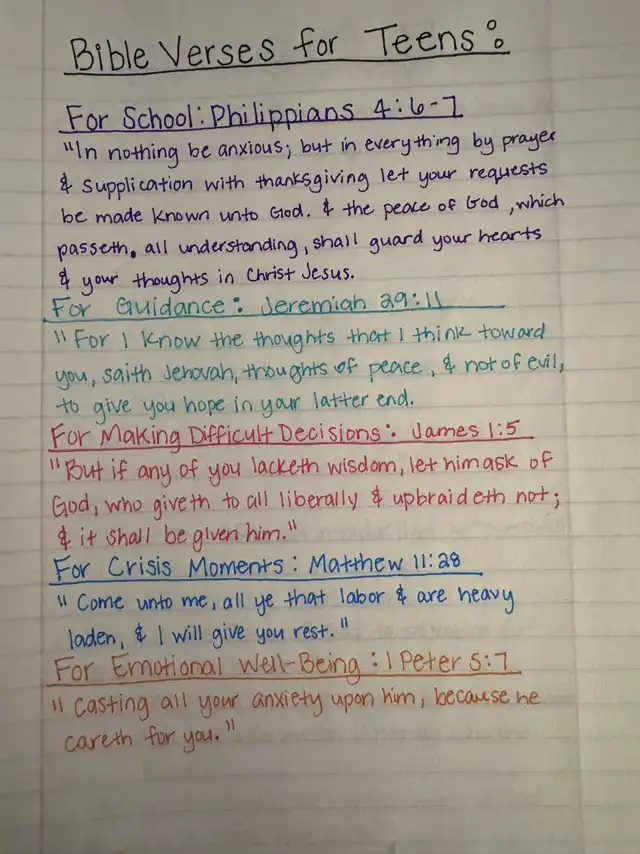 Bible Verses for Teens:
For School: Philippians 4:6-7
"In nothing be anxious; but in everything by prayer
& supplication with thanksgiving let your requests
be made known unto God. & the peace of God, which
passeth. all understanding, shall guard your hearts
& your thoughts in Christ Jesus.
For Guidance: Jeremiah 29:11
"For I know the thoughts that I think toward
you, saith Jehovah, thoughts of peace, & not of evil,
to give you hope in your latter end.
For Making Difficult Decisions: James 1:5
"But if any of you lacketh wisdom, let him ask of
God, who giveth to all liberally & upbraideth not;
& it shall be given him."
For Crisis Moments: Matthew 11:28
"Come unto me, all ye that labor & are heavy
laden, & I will give you rest."
For Emotional Well-Being: 1 Peter 5:7
"Casting all your anxiety upon him, because he
careth for you."